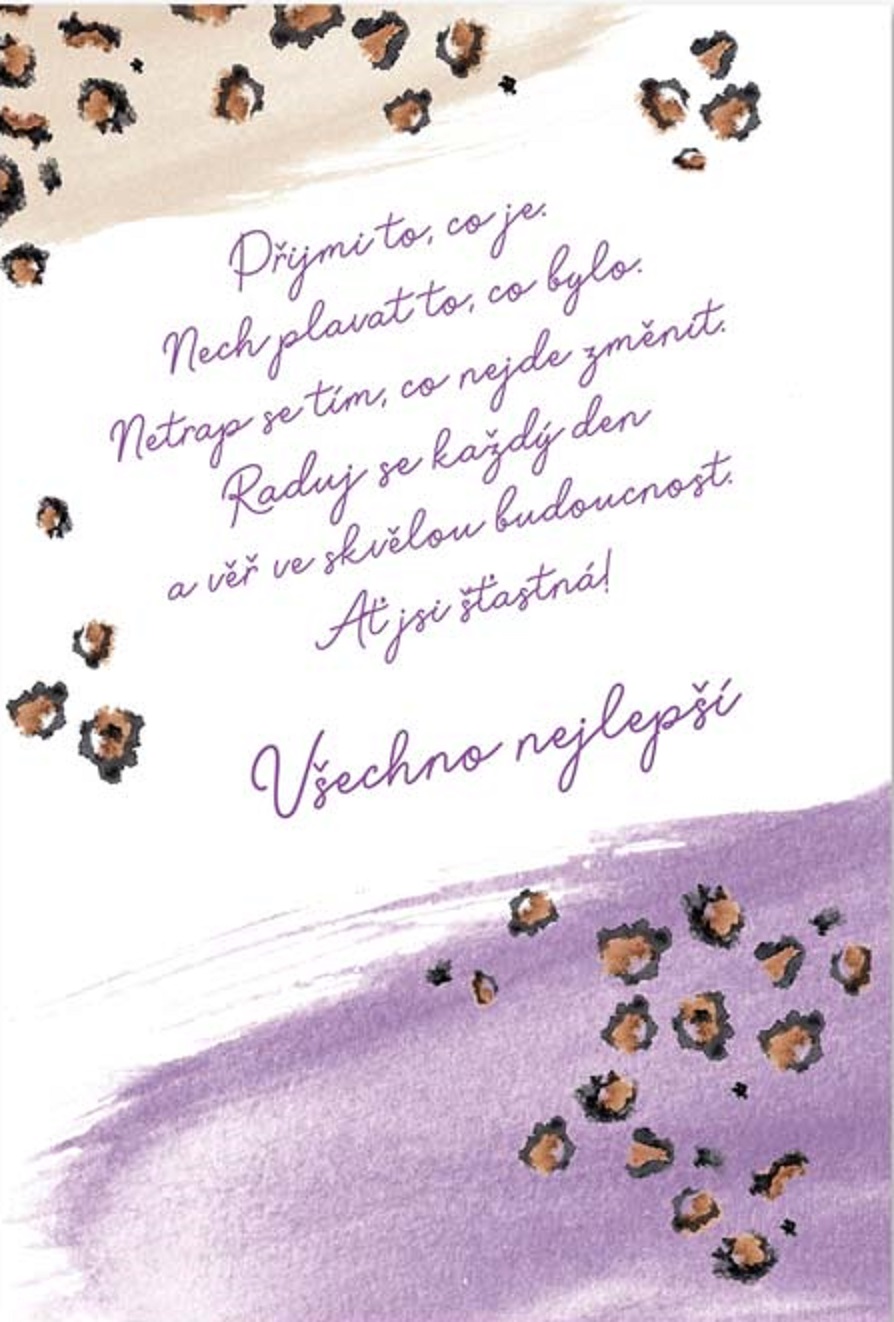 Přijmi to, co je.
Nech plavat to, co bylo.
Netrap se tím, co nejde změnit.
Raduj se každý den
a věř ve skvělou budoucnost.
Ať jsi šťastná!
Všechno nejlepší